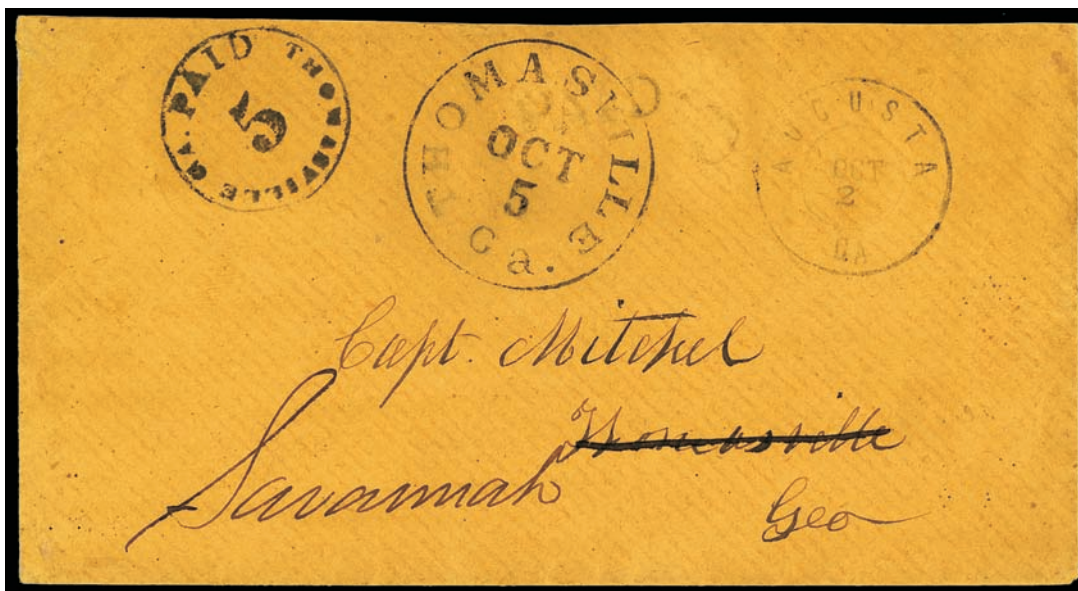 PAID THOMASVILLE GA.
5
THOMASVILLE
OCT
5
Ga.
PAID 5
AUGUSTA
OCT
2
GA
Capt. Mitchel
Thomasville
Savannah
Geo